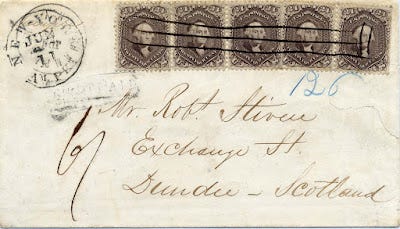 NEW-YORK
JUN
11
126
Mr. Robt. Stiven
Exchange St.
Dundee – Scotland